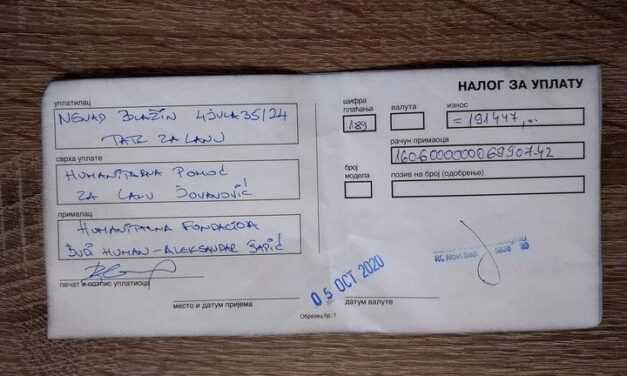 НАЛОГ ЗА УПЛАТУ
уплатилац
NENAD BLAŽIN 4 JULA 35/24
TATE ZA LANU
сврха уплате
HUMANITARNA POMOĆ
ZA LANU JOVANOVIĆ
прималац
HUMANITARNA FONDACIJA
BUDI HUMAN - ALEKSANDAR ŠAPIĆ
печат и потпис уплатиоца
место и датум пријема
Образац бр. 1
шифра
плаћања
189
валута
износ
= 191447,...
рачун примаоца
160-6000000069907-42
број
модела
позив на број (одобрење)
RC Novi Sad
05 OCT 2020
датум валуте